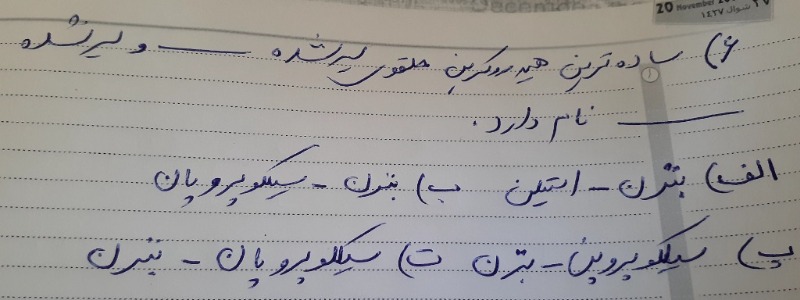 20 November
۱۴۲۷ شوال ۲۷
۶) ساده ترین هیدروکربن حلقوی سیرشده ـــــ و سیرنشده
ـــــ نام دارد.
الف) بنزن - استیلن ب) بنزن - سیکلوپروپان
پ) سیکلوپروپن - بنزن ت) سیکلوپروپان - بنزن